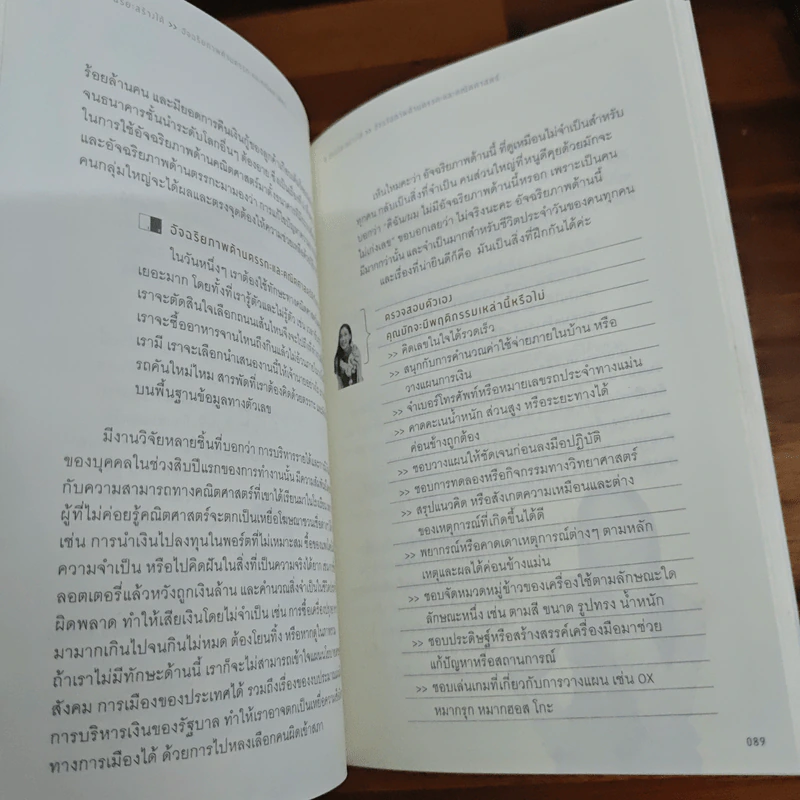 ร้อยล้านคน และมียอดการคืนเงินกู้ของลูกค้า
จนธนาคารชั้นนำระดับโลกอื่นๆ ต้องอาย
ในการใช้อัจฉริยภาพด้านคณิตศาสตร์มา
และอัจฉริยภาพด้านตรรกะมามองว่า การแก้ปัญหา
คนกลุ่มใหญ่จะได้ผลและตรงจุดต้องให้ความช่วยเหลือ
อัจฉริยภาพด้านตรรกะและคณิตศาสตร์
ในวันหนึ่งๆ เราต้องใช้ทักษะทางคณิตศาสตร์
เยอะมาก โดยทั้งที่เรารู้ตัวและไม่รู้ตัว เช่น
เราจะตัดสินใจเลือกถนนเส้นไหนจึงจะไปถึง
เราจะซื้ออาหารจานไหนถึงกินแล้วไม่อ้วน
เรามี เราจะเลือกนำเสนองานนี้ให้เจ้านายอย่างไร
รถคันใหม่ไหม สารพัดที่เราต้องคิดด้วยตรรกะ
บนพื้นฐานข้อมูลทางตัวเลข
มีงานวิจัยหลายชิ้นที่บอกว่า การบริหารรายได้และ
ของบุคคลในช่วงสิบปีแรกของการทำงานนั้น มีความ
กับความสามารถทางคณิตศาสตร์ที่เขาได้เรียนมาในโรงเรียน
ผู้ที่ไม่ค่อยรู้คณิตศาสตร์จะตกเป็นเหยื่อโฆษณาชวนเชื่อ
เช่น การนำเงินไปลงทุนในพอร์ตที่ไม่เหมาะสม ซื้อของ
ความจำเป็น หรือไปคิดฝันในสิ่งที่เป็นความจริงได้ยาก
ลอตเตอรี่แล้วหวังถูกเงินล้าน และคำนวณสิ่งจำเป็นในชีวิต
ผิดพลาด ทำให้เสียเงินโดยไม่จำเป็น เช่น การซื้อเครื่องปรุง
มามากเกินไปจนกินไม่หมด ต้องโยนทิ้ง หรือหากดูในภาพ
ถ้าเราไม่มีทักษะด้านนี้ เราก็จะไม่สามารถเข้าใจแผนนโยบาย
สังคม การเมืองของประเทศได้ รวมถึงเรื่องของงบประมาณ
การบริหารเงินของรัฐบาล ทำให้เราอาจตกเป็นเหยื่อความ
ทางการเมืองได้ ด้วยการไปหลงเลือกคนผิดเข้าสภา
เห็นไหมคะว่า อัจฉริยภาพด้านนี้ ที่ดูเหมือนไม่จำเป็นสำหรับ
ทุกคน กลับเป็นสิ่งที่จำเป็น คนส่วนใหญ่ที่หนูดีคุยด้วยมักจะ
บอกว่า "ดิฉัน/ผม ไม่มีอัจฉริยภาพด้านนี้หรอก เพราะเป็นคน
ไม่เก่งเลข" ขอบอกเลยว่า ไม่จริงนะคะ อัจฉริยภาพด้านนี้
มีมากกว่านั้น และจำเป็นมากสำหรับชีวิตประจำวันของคนทุกคน
และเรื่องที่น่ายินดีก็คือ มันเป็นสิ่งที่ฝึกกันได้ค่ะ
ตรวจสอบตัวเอง
คุณมักจะมีพฤติกรรมเหล่านี้หรือไม่
>> คิดเลขในใจได้รวดเร็ว
>> สนุกกับการคำนวณค่าใช้จ่ายภายในบ้าน หรือ
วางแผนการเงิน
>> จำเบอร์โทรศัพท์หรือหมายเลขรถประจำทางแม่น
>> คาดคะเนน้ำหนัก ส่วนสูง หรือระยะทางได้
ค่อนข้างถูกต้อง
>> ชอบวางแผนให้ชัดเจนก่อนลงมือปฏิบัติ
>> ชอบการทดลองหรือกิจกรรมทางวิทยาศาสตร์
>> สรุปแนวคิด หรือสังเกตความเหมือนและต่าง
ของเหตุการณ์ที่เกิดขึ้นได้ดี
>> พยากรณ์หรือคาดเดาเหตุการณ์ต่างๆ ตามหลัก
เหตุและผลได้ค่อนข้างแม่น
>> ชอบจัดหมวดหมู่ข้าวของเครื่องใช้ตามลักษณะใด
ลักษณะหนึ่ง เช่น ตามสี ขนาด รูปทรง น้ำหนัก
>> ชอบประดิษฐ์หรือสร้างสรรค์เครื่องมือมาช่วย
แก้ปัญหาหรือสถานการณ์
>> ชอบเล่นเกมที่เกี่ยวกับการวางแผน เช่น OX
หมากรุก หมากฮอส โกะ
089